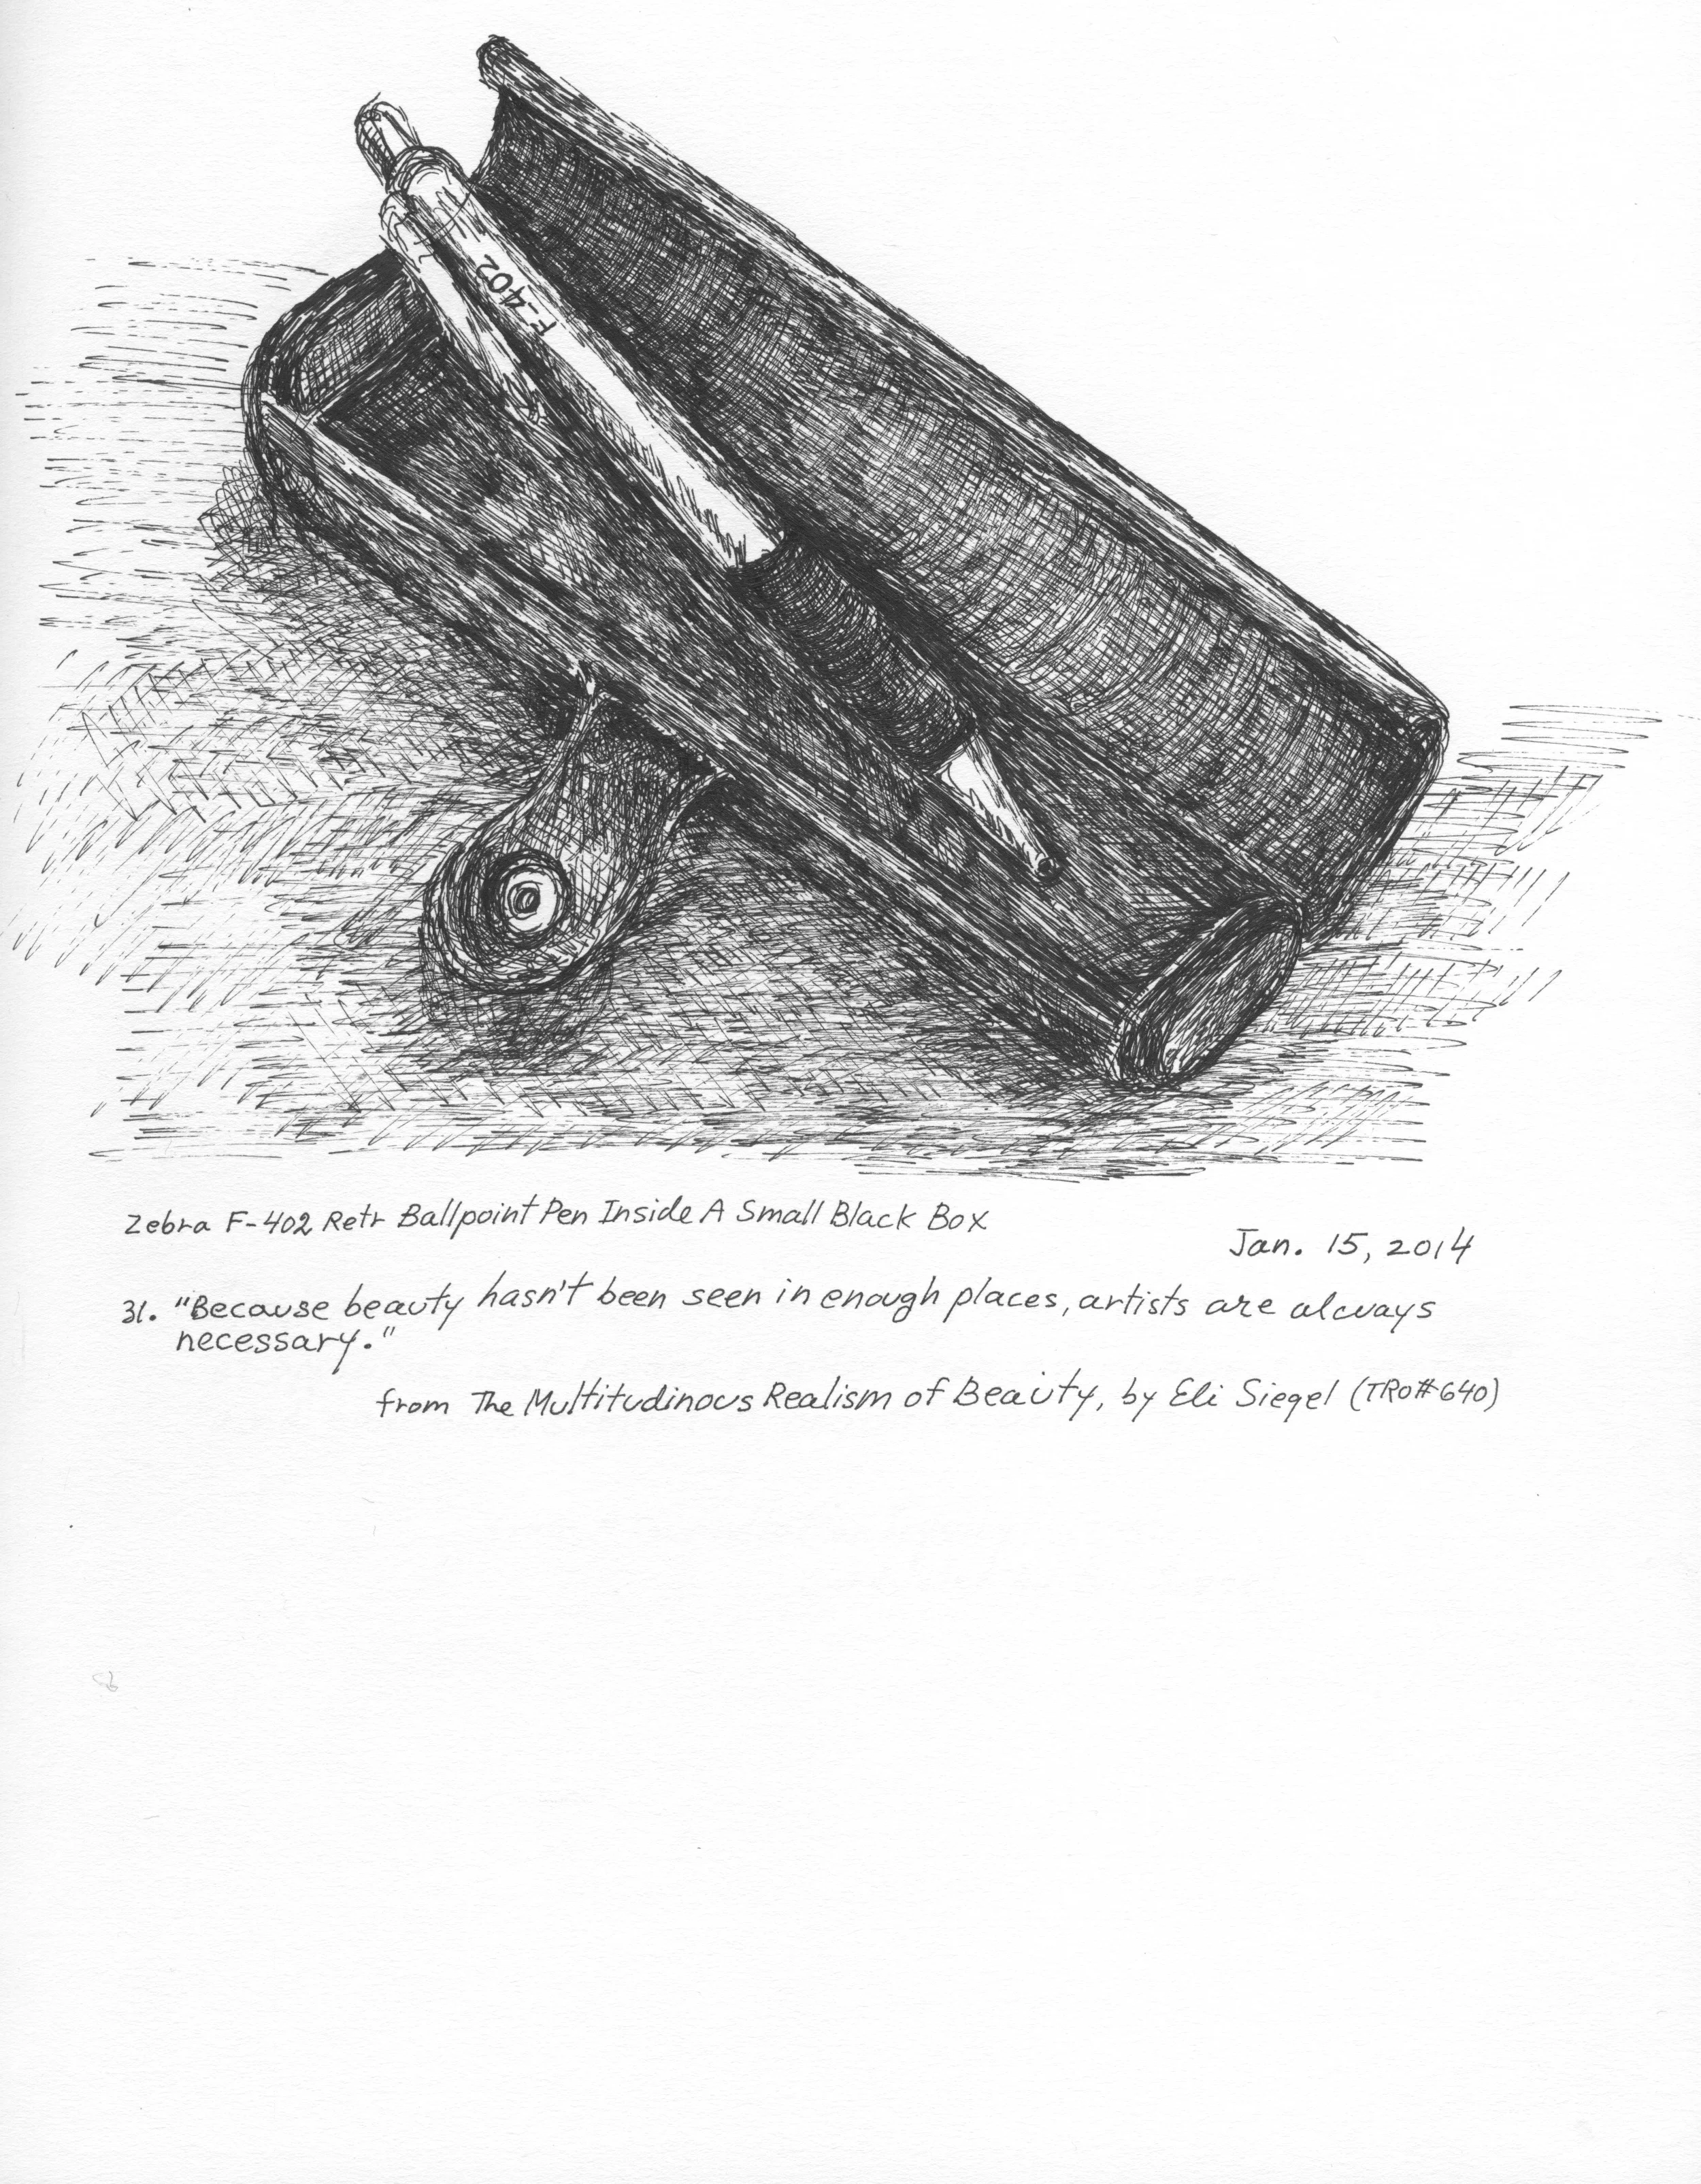 F-402
Zebra F-402 Retr Ballpoint Pen Inside A Small Black Box
Jan. 15, 2014
31. "Because beauty hasn't been seen in enough places, artists are always
necessary."
from The Multitudinous Realism of Beauty, by Eli Siegel (TRO#640)